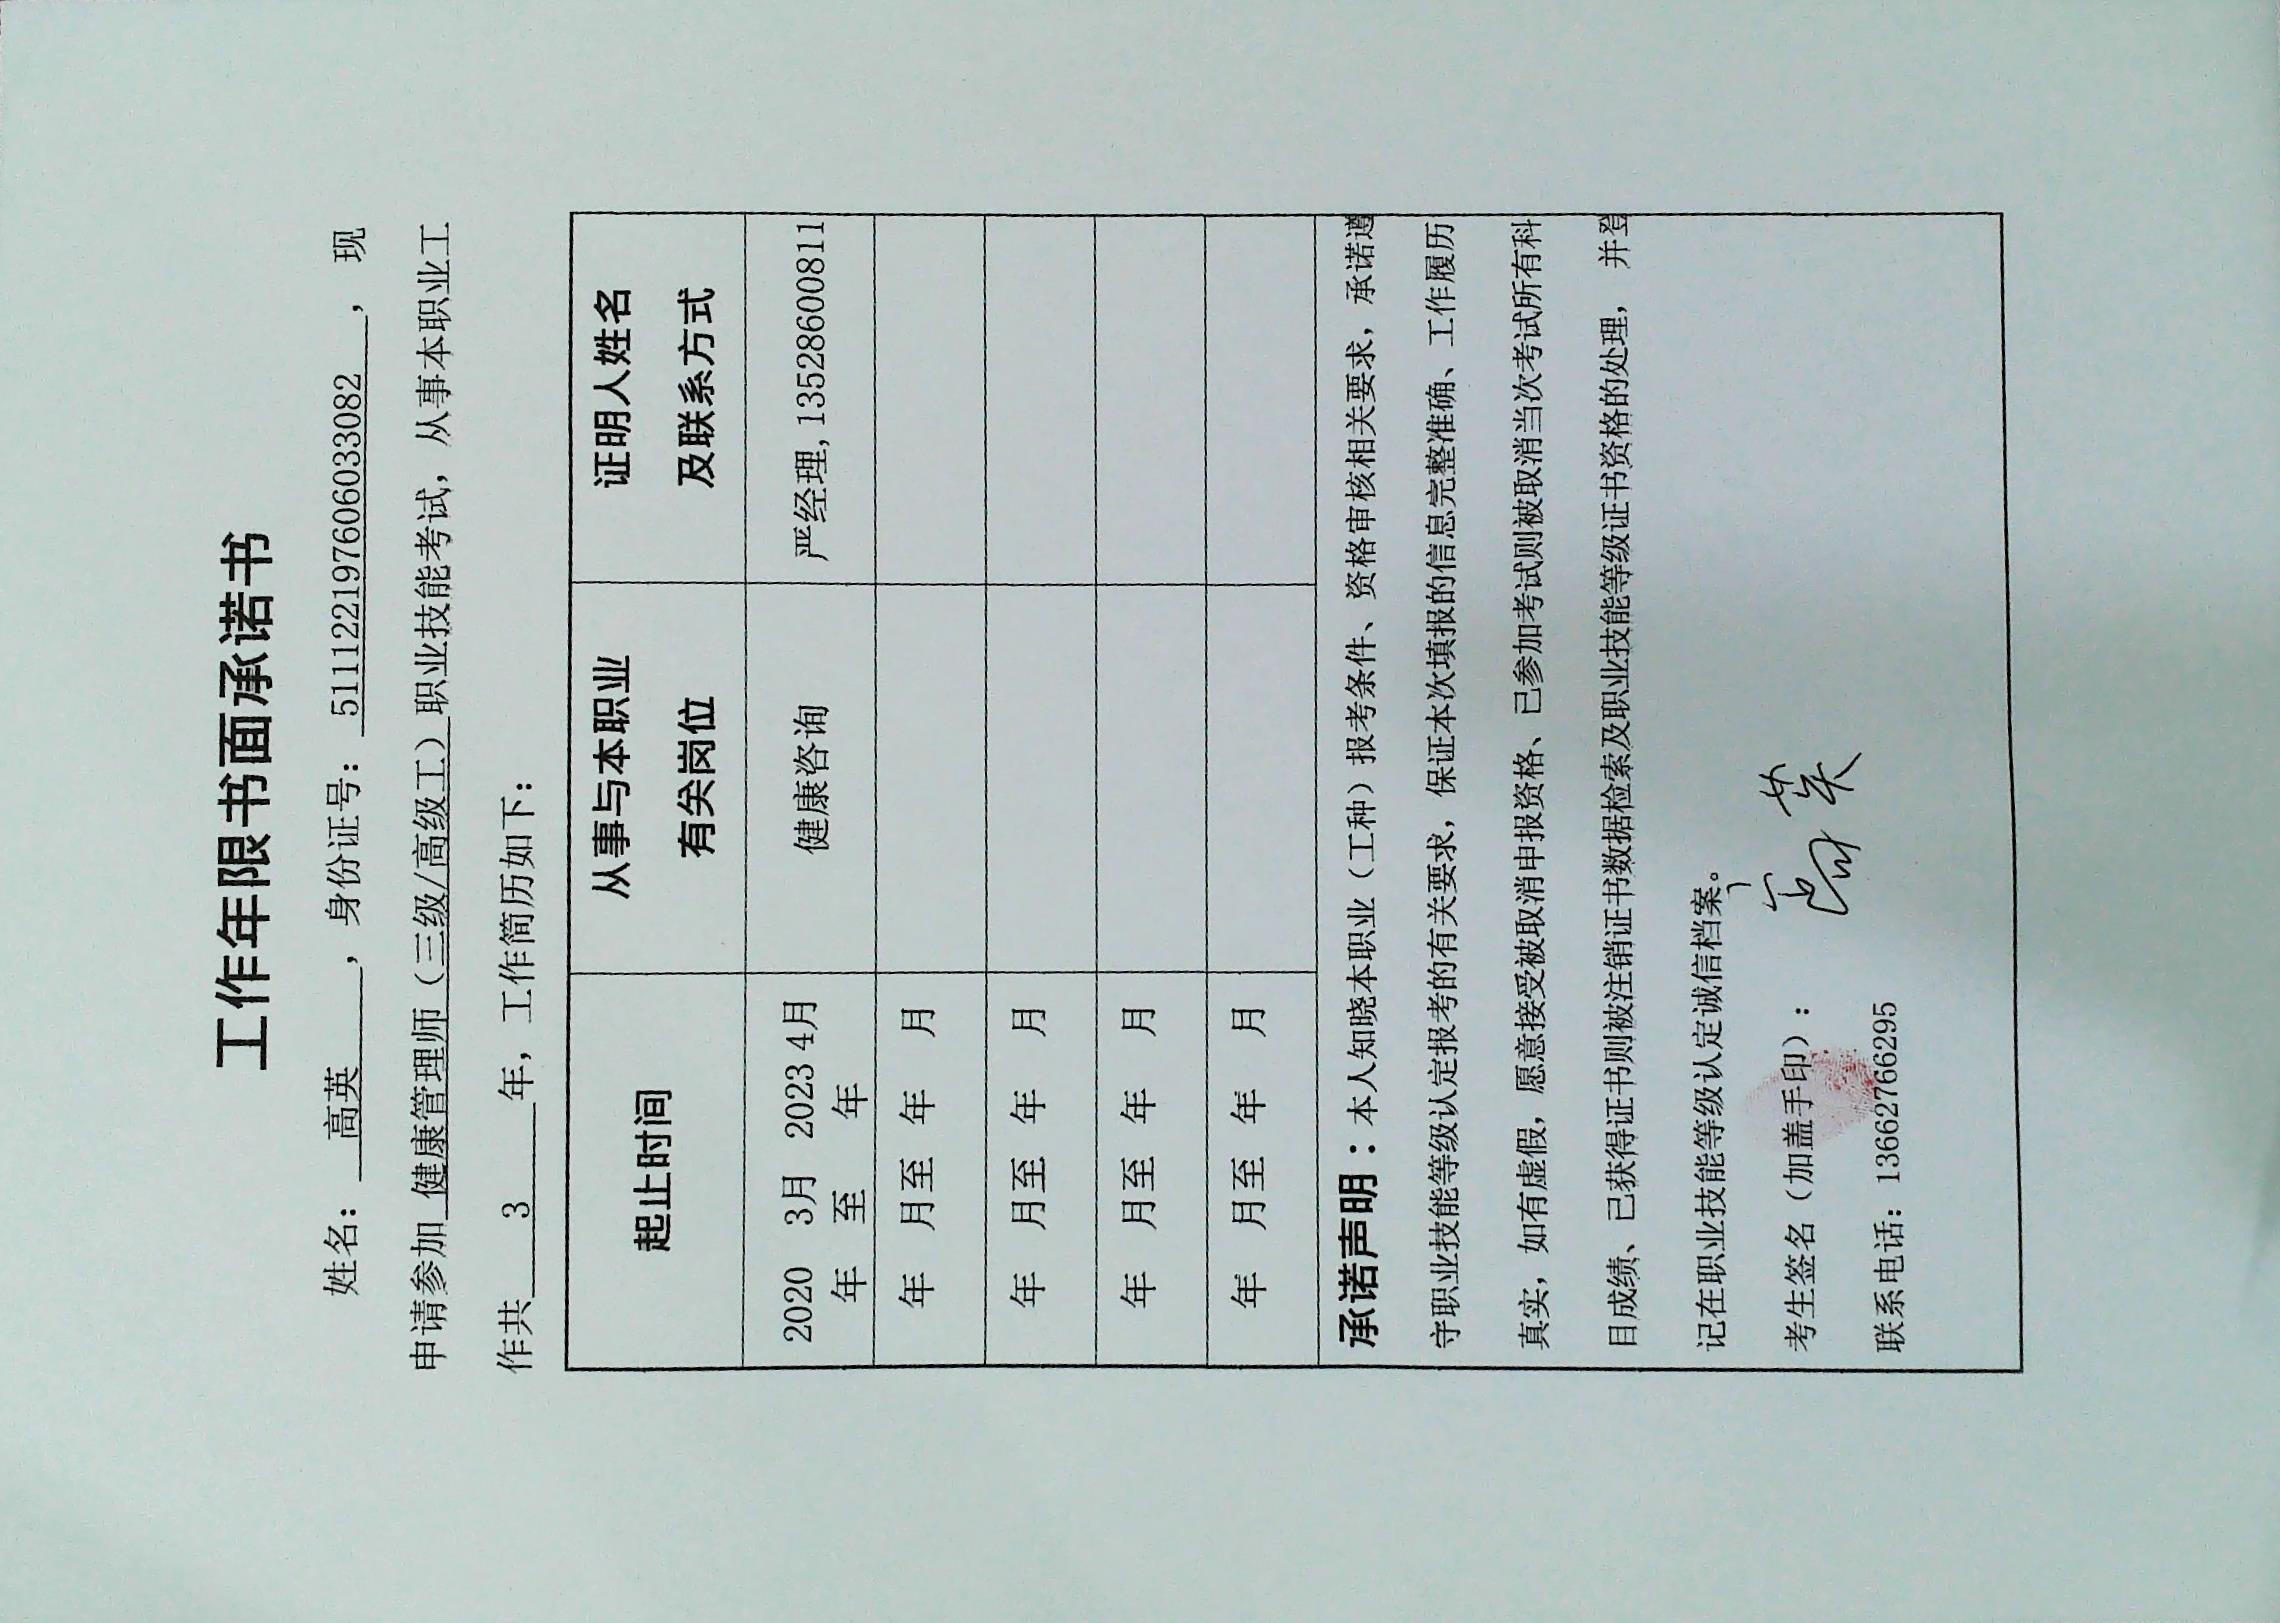 工作年限书面承诺书
姓名：高英，身份证号：511122197606033082，现
申请参加健康管理师（三级/高级工）职业技能考试，从事本职业工
作共3年，工作简历如下：
起止时间 从事与本职业有关岗位 证明人姓名及联系方式
2020年3月至2023年4月 健康咨询 严经理,13528600811
年 月至 年 月
年 月至 年 月
年 月至 年 月
年 月至 年 月
承诺声明：本人知晓本职业（工种）报考条件、资格审核相关要求，承诺遵
守职业技能等级认定报考的有关要求，保证本次填报的信息完整准确、工作履历
真实，如有虚假，愿意接受被取消申报资格、已参加考试则被取消当次考试所有科
目成绩、已获得证书则被注销证书数据检索及职业技能等级证书资格的处理，并登
记在职业技能等级认定诚信档案。
考生签名（加盖手印）：高英
联系电话：13662766295